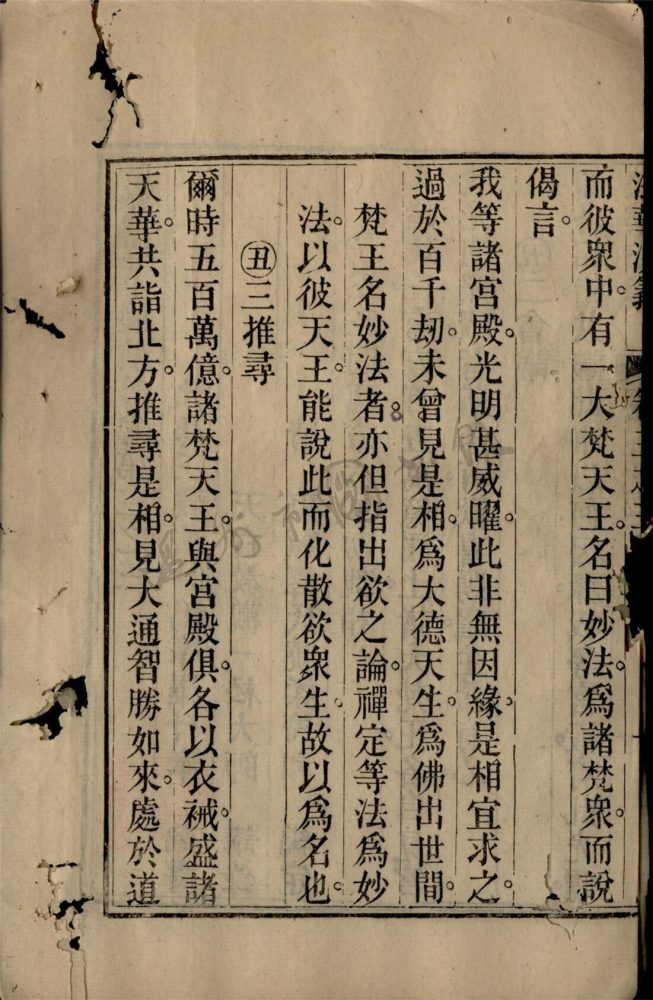 法華演義 卷三之三
而彼眾中。有一大梵天王。名曰妙法。爲諸梵衆。而說
偈言。
我等諸宮殿。光明甚威曜。此非無因緣。是相宜求之。
過於百千劫。未曾見是相。爲大德天生。爲佛出世間。
梵王名妙法者。亦但指出欲之論。禪定等法爲妙
法。以彼天王。能說此而化散欲衆生。故以爲名也。
丑三推尋
爾時五百萬億。諸梵天王。與宮殿俱。各以衣祴。盛諸
天華。共詣北方。推尋是相。見大通智勝如來。處於道